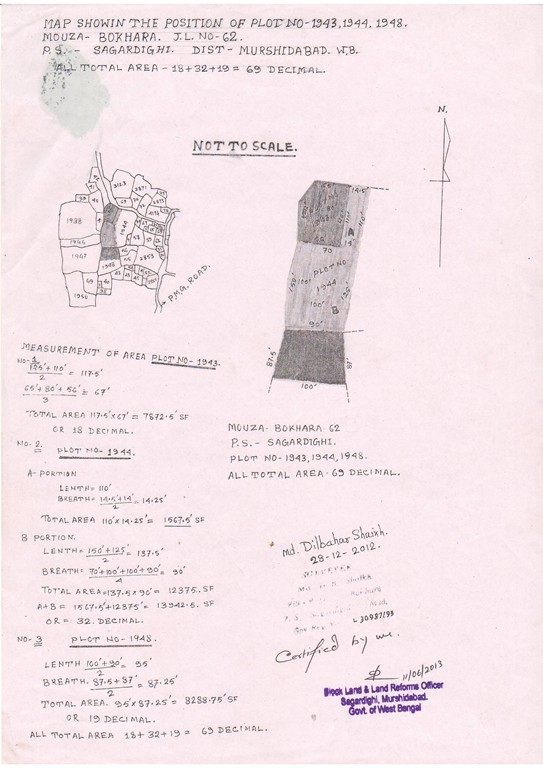 MAP SHOWIN THE POSITION OF PLOT NO-1943,1944,1948.
MOUZA- BOKHARA. J.L. NO-62.
P.S.-- SAGARDIGHI. DIST- MURSHIDABAD. W.B.
ALL TOTAL AREA - 18+32+19 = 69 DECIMAL.
NOT TO SCALE.
N.
3123
2871
1938
1944
1946
1947
1948
2853
1950
P.M.G. ROAD.
14.5'
110'
A
14'
70'
PLOT NO.
1944
150'
100'
125'
100'
B
90'
87.5'
87'
100'
MEASUREMENT OF AREA PLOT NO- 1943.
NO- 1
125'+110' / 2 = 117.5'
65'+80'+56' / 3 = 67'
TOTAL AREA 117.5'x67' = 7872.5' SF
OR 18 DECIMAL.
NO- 2. PLOT NO- 1944.
A- PORTION
LENTH = 110'
BREATH = 14.5'+14' / 2 = 14.25'
TOTAL AREA 110'x 14.25' = 1567.5' SF
B PORTION.
LENTH = 150'+125' / 2 = 137.5'
BREATH = 70'+100'+100'+90' / 4 = 90'
TOTAL AREA = 137.5'x 90' = 12375. SF
A+B = 1567.5'+12375' = 13942.5. SF
OR = 32. DECIMAL.
NO- 3 PLOT NO- 1948.
LENTH 100'+90' / 2 = 95'
BREATH. 87.5+87' / 2 = 87.25'
TOTAL AREA. 95'x87.25' = 8288.75' SF
OR 19 DECIMAL.
ALL TOTAL AREA 18+32+19 = 69 DECIMAL.
MOUZA- BOKHARA 62
P.S.- SAGARDIGHI.
PLOT NO- 1943, 1944, 1948.
ALL TOTAL AREA- 69 DECIMAL.
Md. Dilbahar Shaikh.
28-12-2012.
L 30987/93
Certified by me.
11/06/2013
Block Land & Land Reforms Officer
Sagardighi, Murshidabad.
Govt. of West Bengal